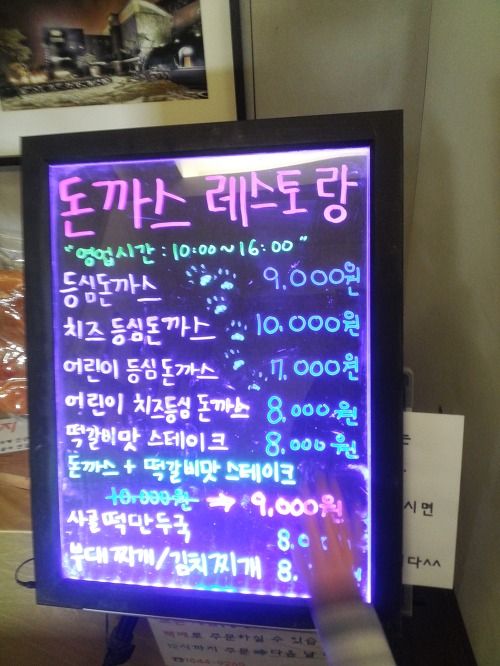 돈까스 레스토랑
"영업시간 : 10:00~16:00"
등심돈까스 9,000원
치즈 등심돈까스 10,000원
어린이 등심 돈까스 7,000원
어린이 치즈등심 돈까스 8,000원
떡갈비맛 스테이크 8,000원
돈까스 + 떡갈비맛 스테이크
10,000원 → 9,000원
사골 떡만두국 8.0
부대찌개/김치찌개 8.
는
시면
다^^
택배로 주문하실 수 있습
12시까지 주문